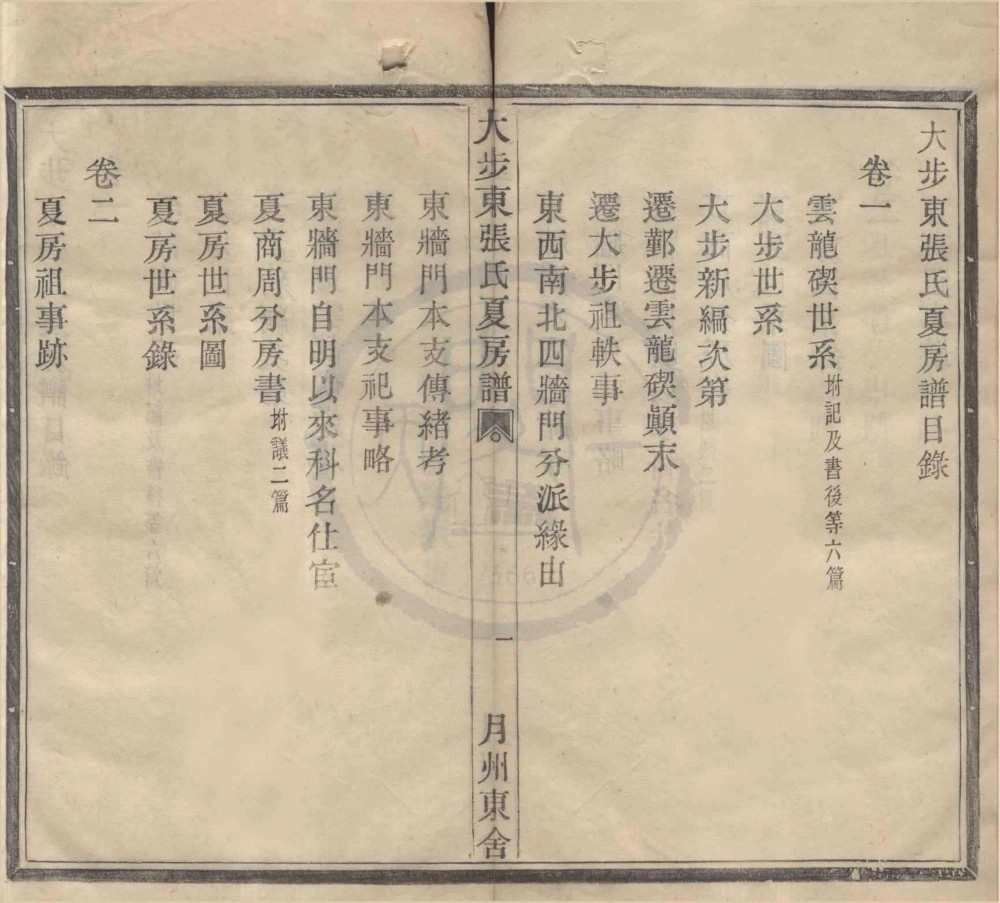 大步東張氏夏房譜目錄
卷一
雲龍碶世系 坿記及書後等六篇
大步世系
大步新編次第
遷鄞遷雲龍碶顚末
遷大步祖軼事
東西南北四牆門分派緣由
大步東張氏夏房譜 一 月州東舍
東牆門本支傳緒考
東牆門本支祀事略
東牆門自明以來科名仕宦
夏商周分房書 坿議二篇
夏房世系圖
夏房世系錄
卷二
夏房祖事跡